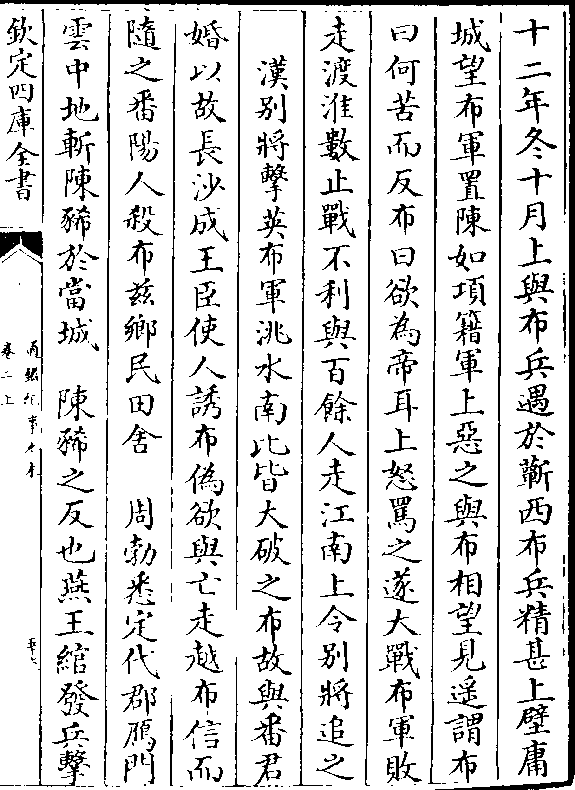 十二年冬十月上與布兵遇於蘄西布兵精甚上壁庸
城望布軍置陳如項籍軍上惡之與布相望見遥謂布
曰何苦而反布曰欲為帝耳上怒罵之遂大戰布軍敗
走渡淮數止戰不利與百餘人走江南上令别將追之
漢别將擊英布軍洮水南北皆大破之布故與番君
婚以故長沙成王臣使人誘布偽欲與亡走越布信而
隨之番陽人殺布兹鄉民田舍 周勃悉定代郡鴈門
雲中地斬陳豨於當城 陳豨之反也燕王綰發兵擊
欽定四庫全書
卷二上